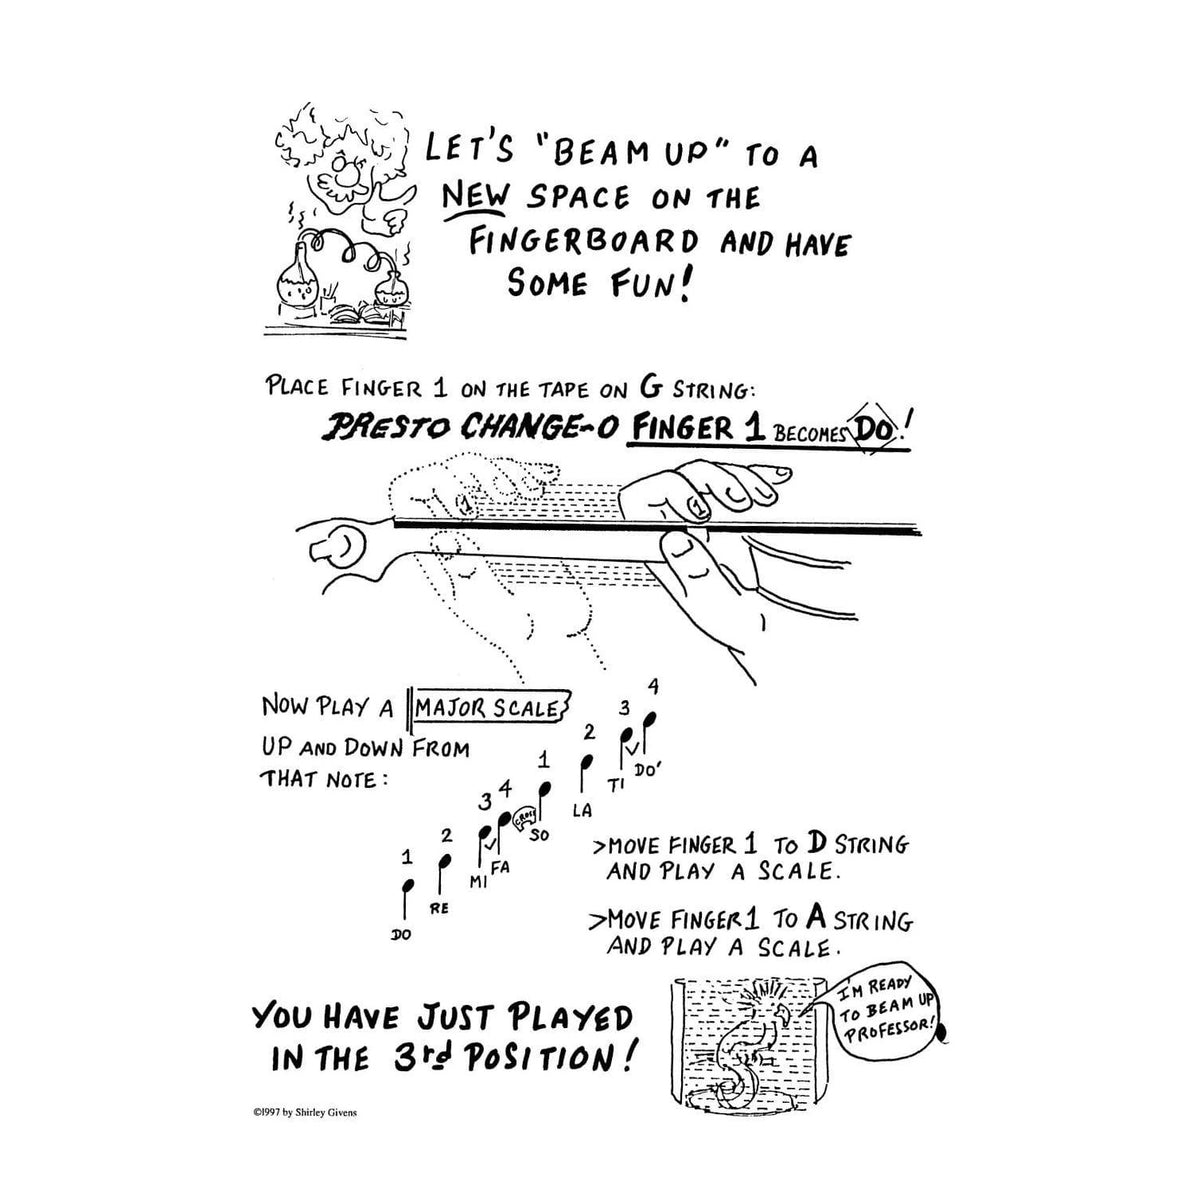 LET'S "BEAM UP" TO A
NEW SPACE ON THE
FINGERBOARD AND HAVE
SOME FUN!
PLACE FINGER 1 ON THE TAPE ON G STRING:
PRESTO CHANGE-O FINGER 1 BECOMES DO!
1
1
NOW PLAY A MAJOR SCALE
UP AND DOWN FROM
THAT NOTE:
1 2 3 4 1 2 3 4
CROSS
DO RE MI FA SO LA TI DO'
>MOVE FINGER 1 TO D STRING
AND PLAY A SCALE.
>MOVE FINGER 1 TO A STRING
AND PLAY A SCALE.
I'M READY
TO BEAM UP
PROFESSOR!
YOU HAVE JUST PLAYED
IN THE 3rd POSITION!
©1997 by Shirley Givens